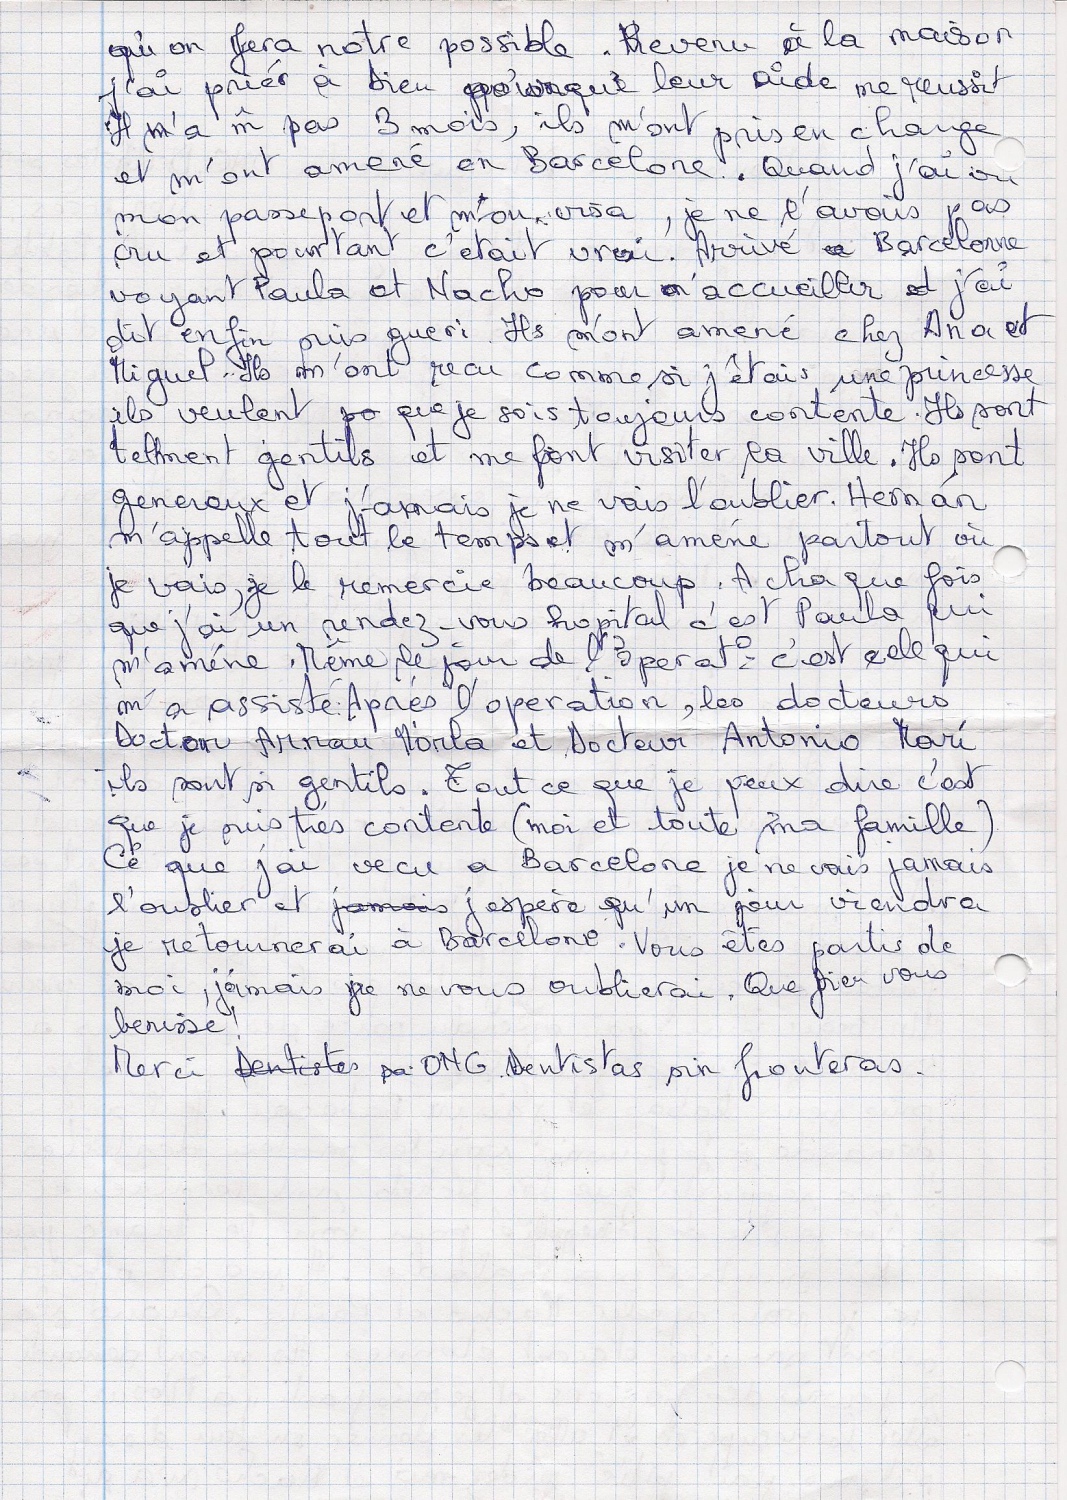 qu'on fera notre possible. Revenu à la maison
j'ai prier à Dieu pourque leur aide me reussit
Il m'a m̂ pas 3 mois, ils m'ont pris en charge
et m'ont amené en Barcelone. Quand j'ai vu
mon passeport et mon visa, je ne l'avais pas
cru et pourtant c'était vrai. Arrivé a Barcelonne
voyant Paula et Nacho pour m'accueillir et j'ai
dit enfin suis gueri. Ils m'ont amené chez Ana et
Miguel. Ils m'ont recu comme si j'étais une princesse
ils veulent po que je sois toujours contente. Ils sont
tellment gentils et me font visiter la ville. Ils sont
generaux et jamais je ne vais l'oublier. Hernán
m'appelle tout le temps et m'améne partout où
je vais, je le remercie beaucoup. A chaque fois
que j'ai un rendez-vous hopital c'est Paula qui
m'améne. Même le jour de l'operat° c'est cele qui
m'a assisté. Aprés l'operation, les docteurs
Doctor Arnau Morla et Docteur Antonio Mari
ils sont si gentils. Tout ce que je peux dire c'est
que je suis trés contente (moi et toute ma famille)
Ce que j'ai vecu a Barcelone je ne vais jamais
l'oublier et jamais j'espère qu'un jour viendra
je retournerai à Barcelone. Vous êtes partis de
moi, jamais je ne vous oublierai. Que Dieu vous
benisse!
Merci Dentistes pa ONG Dentistas sin fronteras.